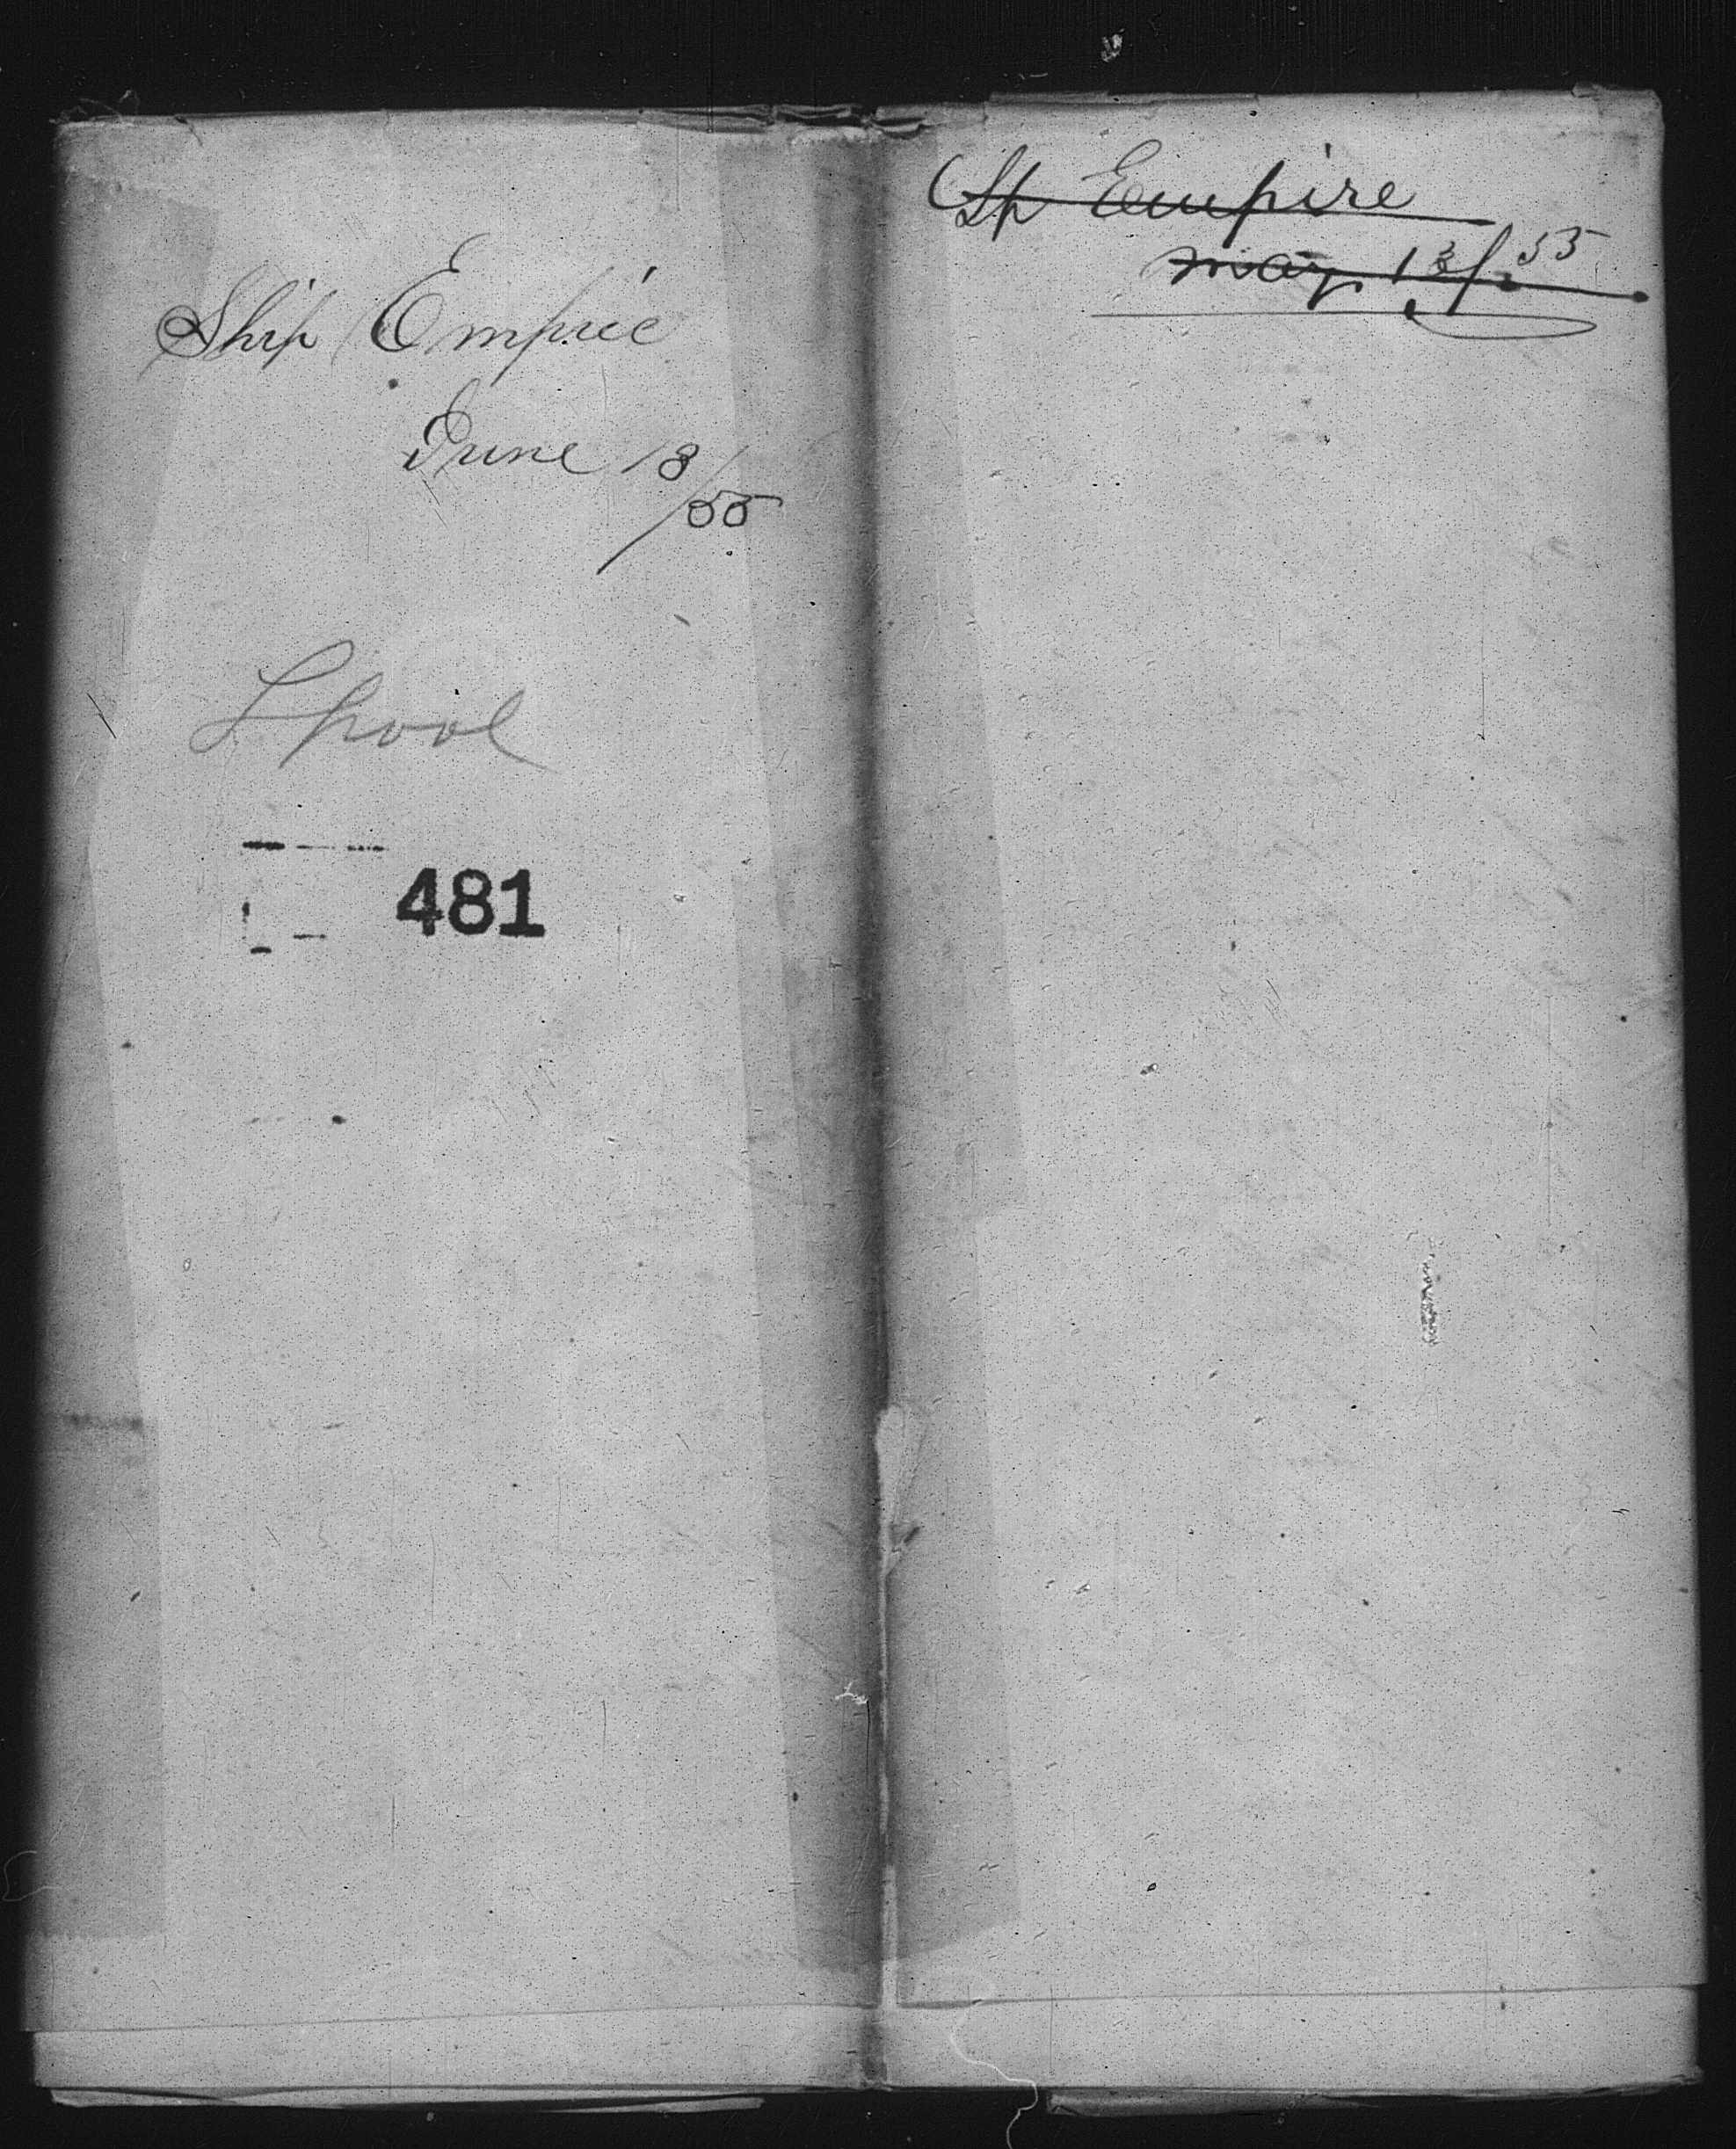 Ship Empire
June 18/55
Lpool
481
Sp Empire
May 13/55